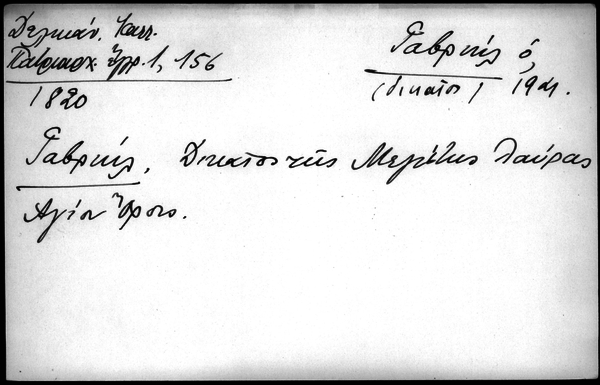 Δελικάν. Καλλ.
Πατριαρχ. Ἔγγρ. 1, 156
1820
Γαβριήλ ὁ,
(δικαῖος) 19 αι.
Γαβριήλ, Δικαῖος τῆς Μεγίστης Λαύρας
Ἁγίου Ὄρους.